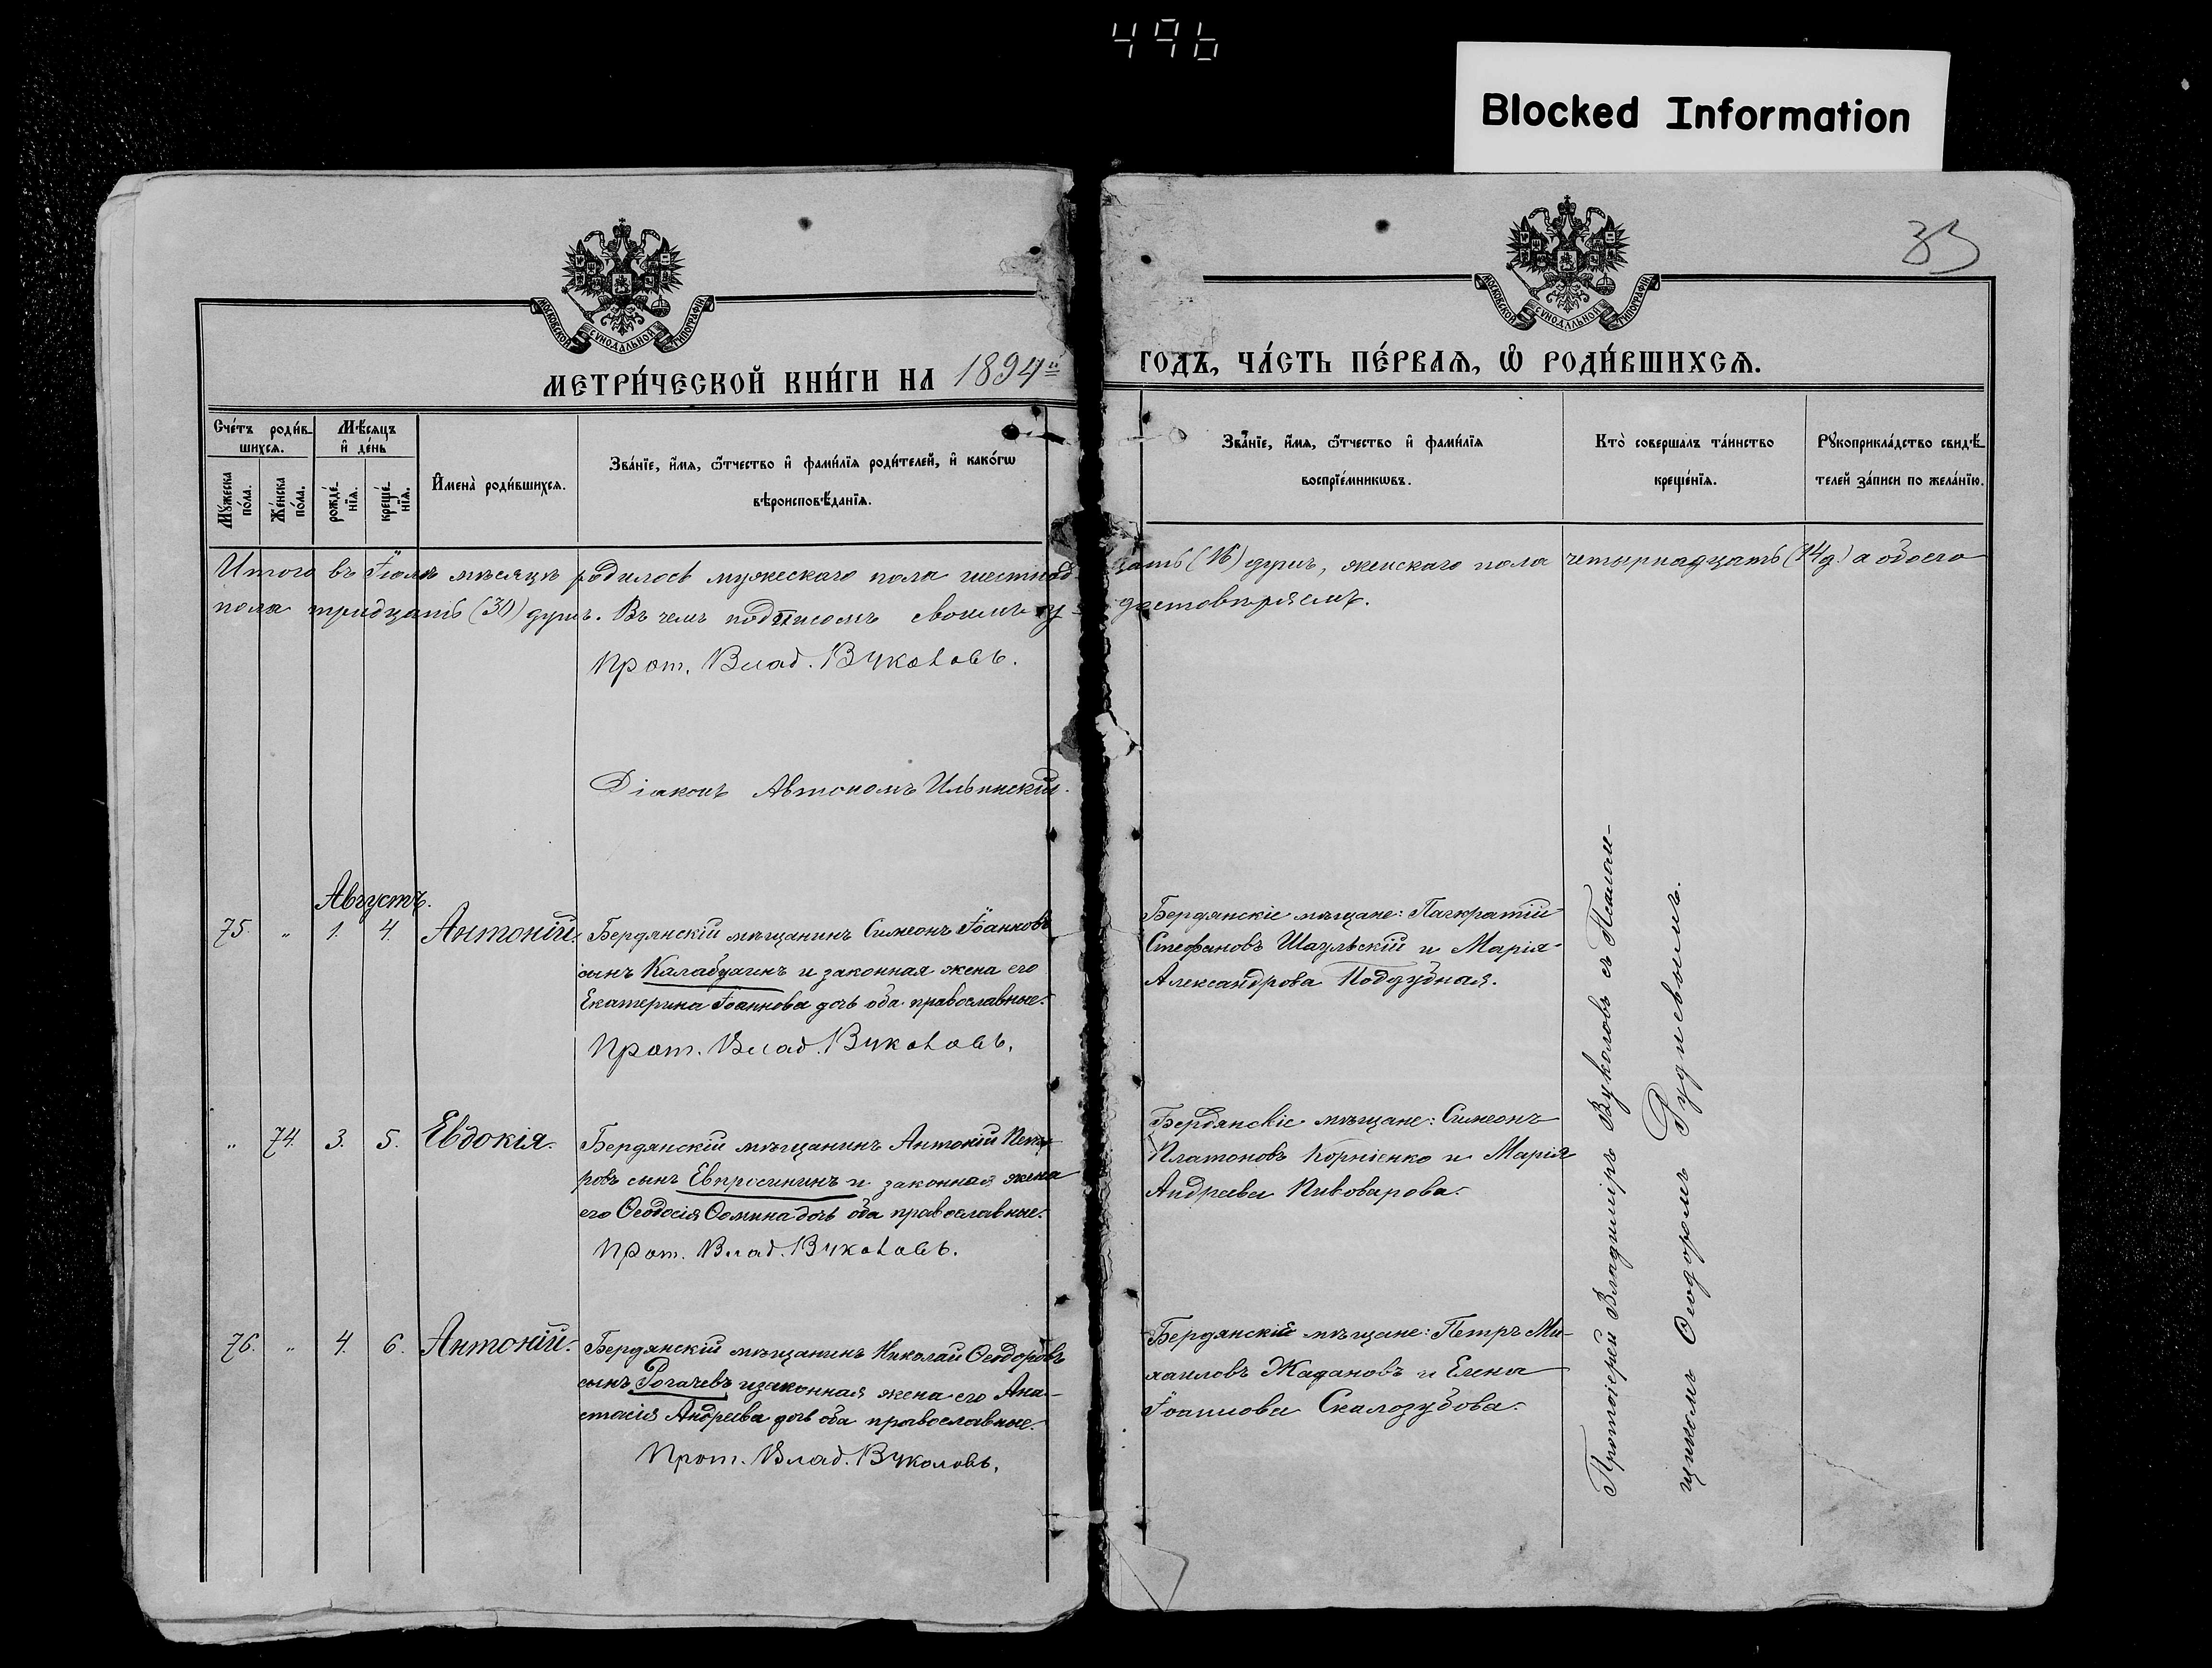 496
Blocked Information
33
МОСКОВСКОЙ СѴНОДАЛЬНОЙ ТИПОГРАФІИ
МОСКОВСКОЙ СѴНОДАЛЬНОЙ ТИПОГРАФІИ
МЕТРИ́ЧЕСКОЙ КНИ́ГИ НА 1894й ГОДЪ, ЧА́СТЬ ПЕ́РВАѦ, Ѡ РОДИ́ВШИХСѦ.
Сче́тъ роди́в-
шихсѧ.
Мꙋ́жеска по́ла.
Же́нска по́ла.
Мѣ́сяцъ
и҆ де́нь
рожде́-нїѧ.
креще́-нїѧ.
И҆мена̀ роди́вшихсѧ.
Зва́нїе, и҆́мѧ, ѻ҆́тчество и҆ фами́лїѧ роди́телей, и҆ како́гѡ
вѣроисповѣ́данїѧ.
Зва́нїе, и҆́мѧ, ѻ҆́тчество и҆ фами́лїѧ
воспрїе́мникѡвъ.
Кто̀ соверша́лъ та́инство
креще́нїѧ.
Рꙋкоприкла́дство свидѣ́-
телей за́писи по жела́нїю.
Итого въ Іюлѣ мѣсяцѣ родилось мужескаго пола шестнад-цать (16) душъ, женскаго пола четырнадцать (14 д.) а обоего
пола тридцать (30) душъ. Въ чемъ подписомъ своимъ удостовѣряемъ.
Прот. Влад. Вуколовъ.
Діаконъ Автономъ Ильинскій.
Августъ.
75. „ 1. 4. Антоній. Бердянскій мѣщанинъ Симеонъ Іоанновъ
сынъ Калабугинъ и законная жена его
Екатерина Іоаннова дочь оба православные.
Прот. Влад. Вуколовъ.
Бердянскіе мѣщане: Панкратій
Стефановъ Шаульскій и Марія
Александрова Поддубная.
„ 74. 3. 5. Евдокія. Бердянскій мѣщанинъ Антоній Пет-
ровъ сынъ Евпросининъ и законная жена
его Ѳеодосія Ѳомина дочь оба православные.
Прот. Влад. Вуколовъ.
Бердянскіе мѣщане: Симеонъ
Платоновъ Корніенко и Марія
Андреева Пивоварова.
76. „ 4. 6. Антоній. Бердянскій мѣщанинъ Николай Ѳеодоровъ
сынъ Рогачевъ и законная жена его Ана-
стасія Андреева дочь оба православные.
Прот. Влад. Вуколовъ.
Бердянскіе мѣщане: Петръ Ми-
хаиловъ Жадановъ и Елена
Іоаннова Скалозубова.
Протоіерей Владиміръ Вуколовъ съ Псалом-
щикомъ Ѳеодоромъ Рудневымъ.